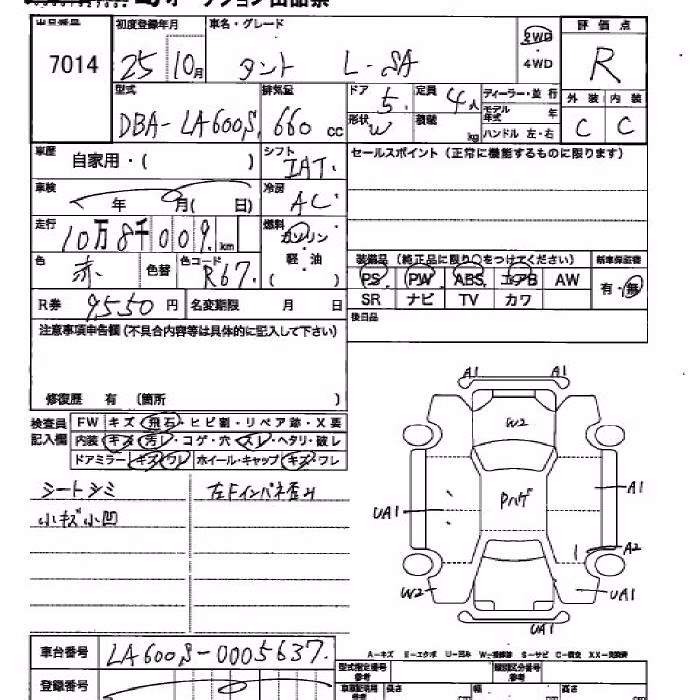 オークション出品票
出品番号 初度登録年月 車名・グレード 評価点
7014 25 10月 タント L-SA 2WD ・ 4WD R
型式 排気量 ドア 定員 ディーラー・並行 外装 内装
DBA-LA600S. 660 cc 5. 4人 モデル年式 年 C C
形状 W 積載 kg ハンドル 左・右
車歴 シフト セールスポイント (正常に機能するものに限ります)
自家用・( ) IAT.
車検 冷房
年 月( 日) AC.
走行 燃料
10万8千009. km ガソリン
色 色替 色コード 軽・油 装備品 (純正品に限り○をつけてください) 新車保証書
赤. R67. ( ) PS. PW ABS. エアB AW 有・無
R券 9550 円 名変期限 月 日 SR ナビ TV カワ
注意事項申告欄 (不具合内容等は具体的に記入して下さい) 後日品
修復歴 有 (箇所 )
検査員 FW キズ・飛石・ヒビ割・リペア跡・X要
記入欄 内装 キズ・汚レ・コゲ・穴・スレ・ヘタリ・破レ
ドアミラー キズ・ワレ ホイール・キャップ キズ・ワレ
A1 A1
W2
シートシミ 左Fインパネ歪み
小キズ小凹
Pハゲ
UA1 A1
A2
W2 UA1
UA1
車台番号 LA600S-0005637.
A-キズ E-エクボ U-凹み W-補修跡 S-サビ C-腐食 XX-交換済
型式指定番号 参考 類別区分番号 参考
登録番号 車庫証明用 参考 長さ cm 幅 cm 高さ cm